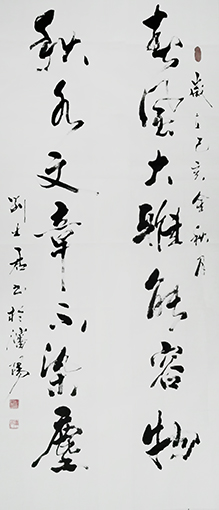 歲之己亥金秋月
春風大雅能容物
秋水文章不染塵
劉書於瀋陽